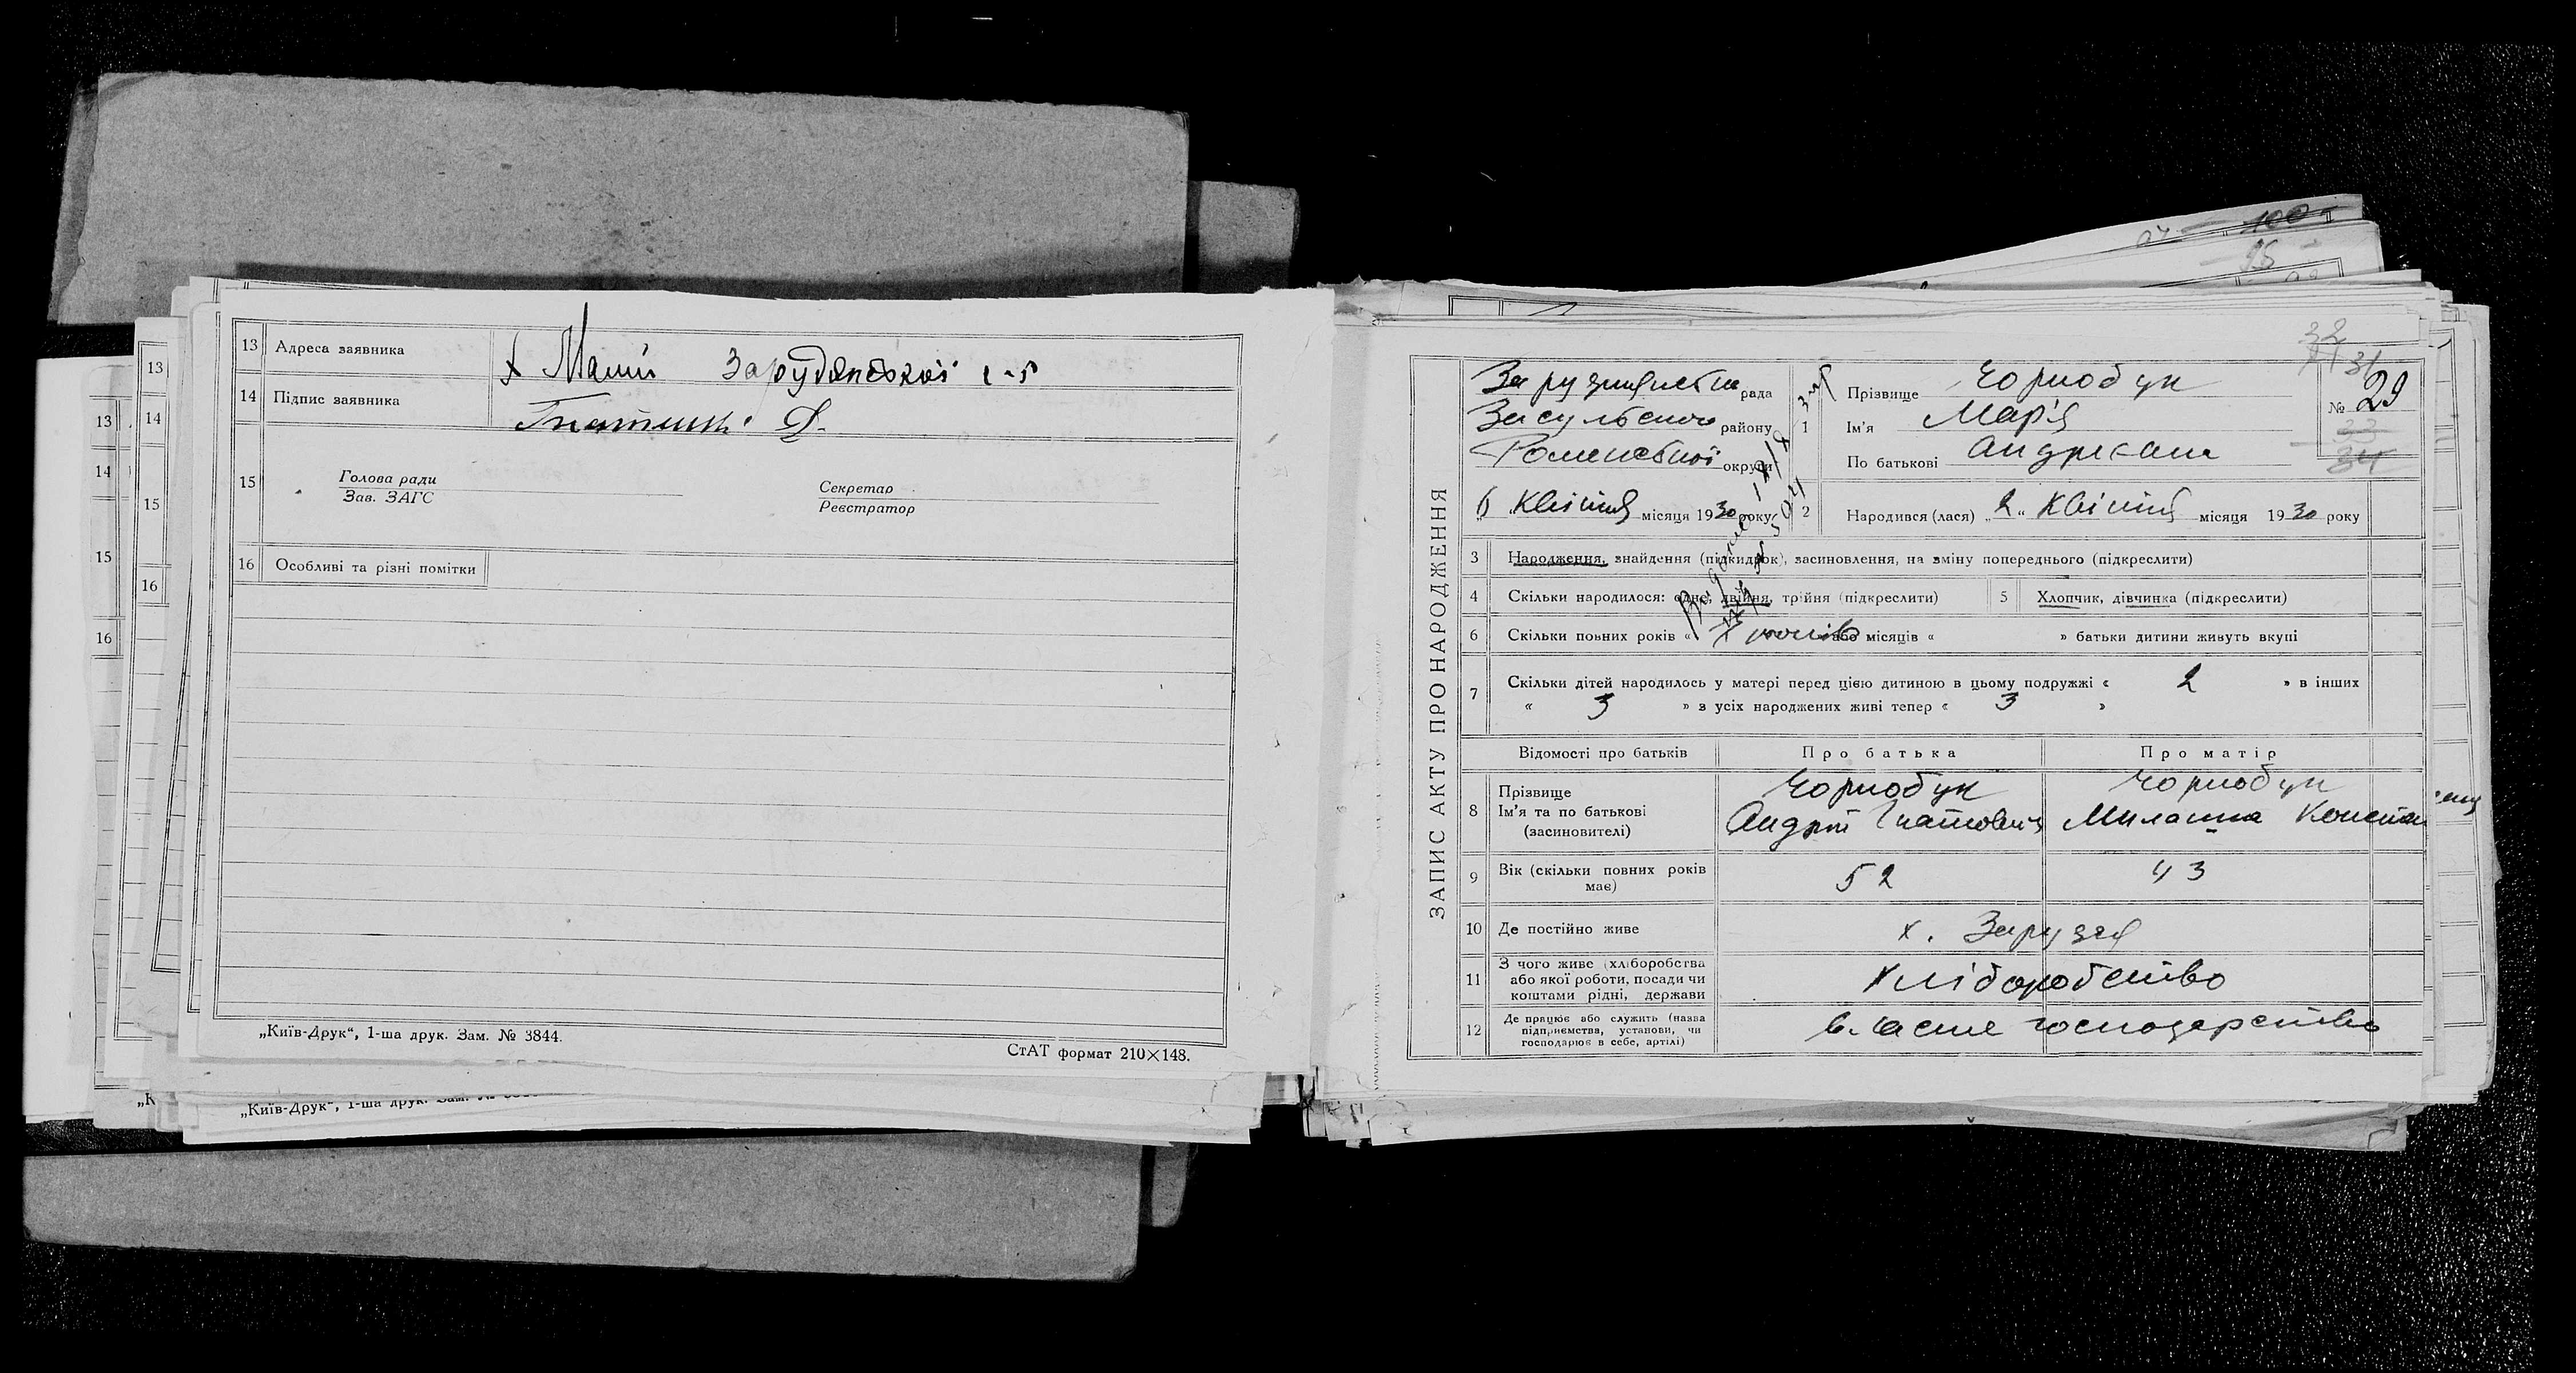 13 Адреса заявника х Мамии Зарудянської с-р
14 Підпис заявника
15 Голова ради
Зав. ЗАГС
Секретар
Реєстратор
16 Особливі та різні помітки
„Київ-Друк“, 1-ша друк. Зам. № 3844.
СтАТ формат 210×148.
„Київ-Друк“, 1-ша друк.
13
14
15
16
13
14
15
16
100
95
ЗАПИС АКТУ ПРО НАРОДЖЕННЯ
рада
Засульского району
Роменської округи
квітня місяця 1930 року
32
31
№ 29
33
34
1 Прізвище Чорнобук
Ім’я Мар'я
По батькові Андреевна
2 Народився (лася) „2“ квітня місяця 1930 року
3 Народження, знайдення (підкидок), засиновлення, на зміну попереднього (підкреслити)
4 Скільки народилося: одно, двійня, трійня (підкреслити) 5 Хлопчик, дівчинка (підкреслити)
6 Скільки повних років « 7 років або місяців « » батьки дитини живуть вкупі
7 Скільки дітей народилось у матері перед цією дитиною в цьому подружжі « 2 » в інших
« 3 » з усіх народжених живі тепер « 3 »
Відомості про батьків Про батька Про матір
8 Прізвище Чорнобук Чорнобук
Ім’я та по батькові Андрій Гнатович Милашка Констан
(засиновителі)
9 Вік (скільки повних років має) 52 43
10 Де постійно живе х. Зарудя
11 З чого живе (хліборобства
або якої роботи, посади чи
коштами рідні, держави хліборобство
12 Де працює або служить (назва
підприємства, установи, чи
господарює в себе, артілі) власне господарство